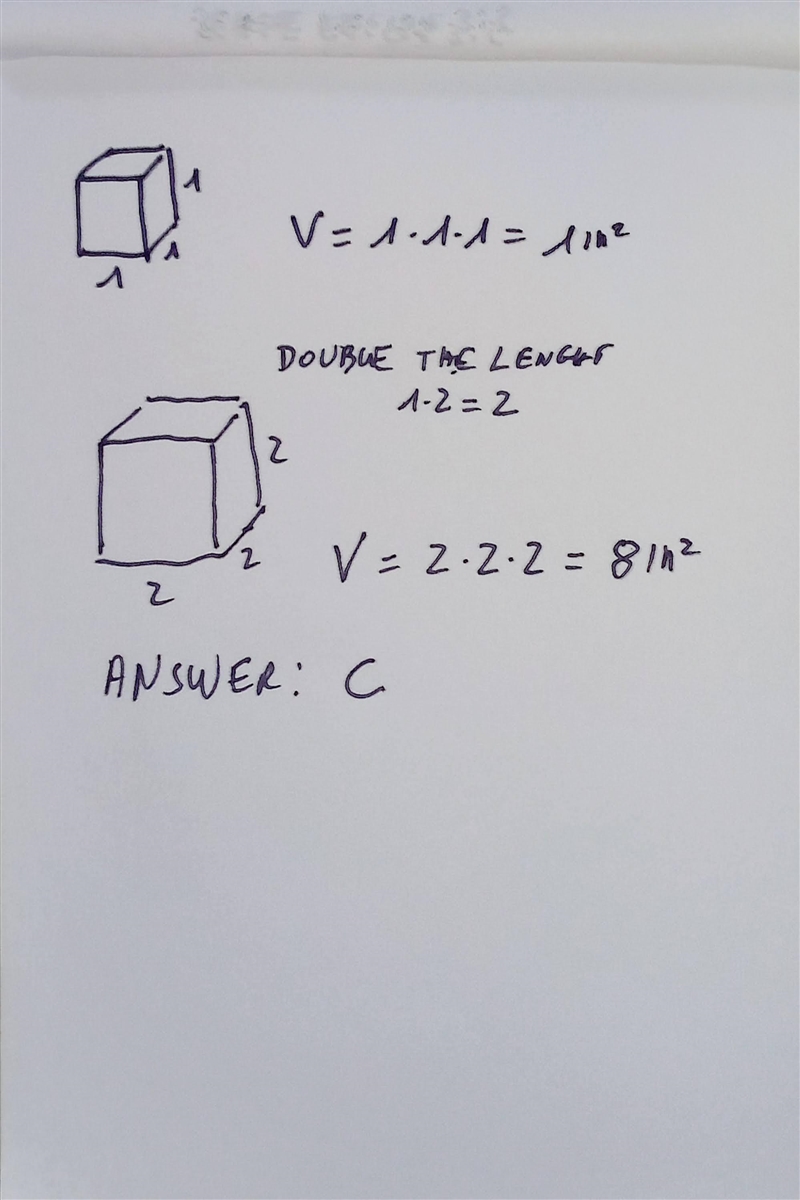 1
1
1
V = 1·1·1 = 1 in²
DOUBLE THE LENGHT
1·2 = 2
2
2
2
V = 2·2·2 = 8 in²
ANSWER: C